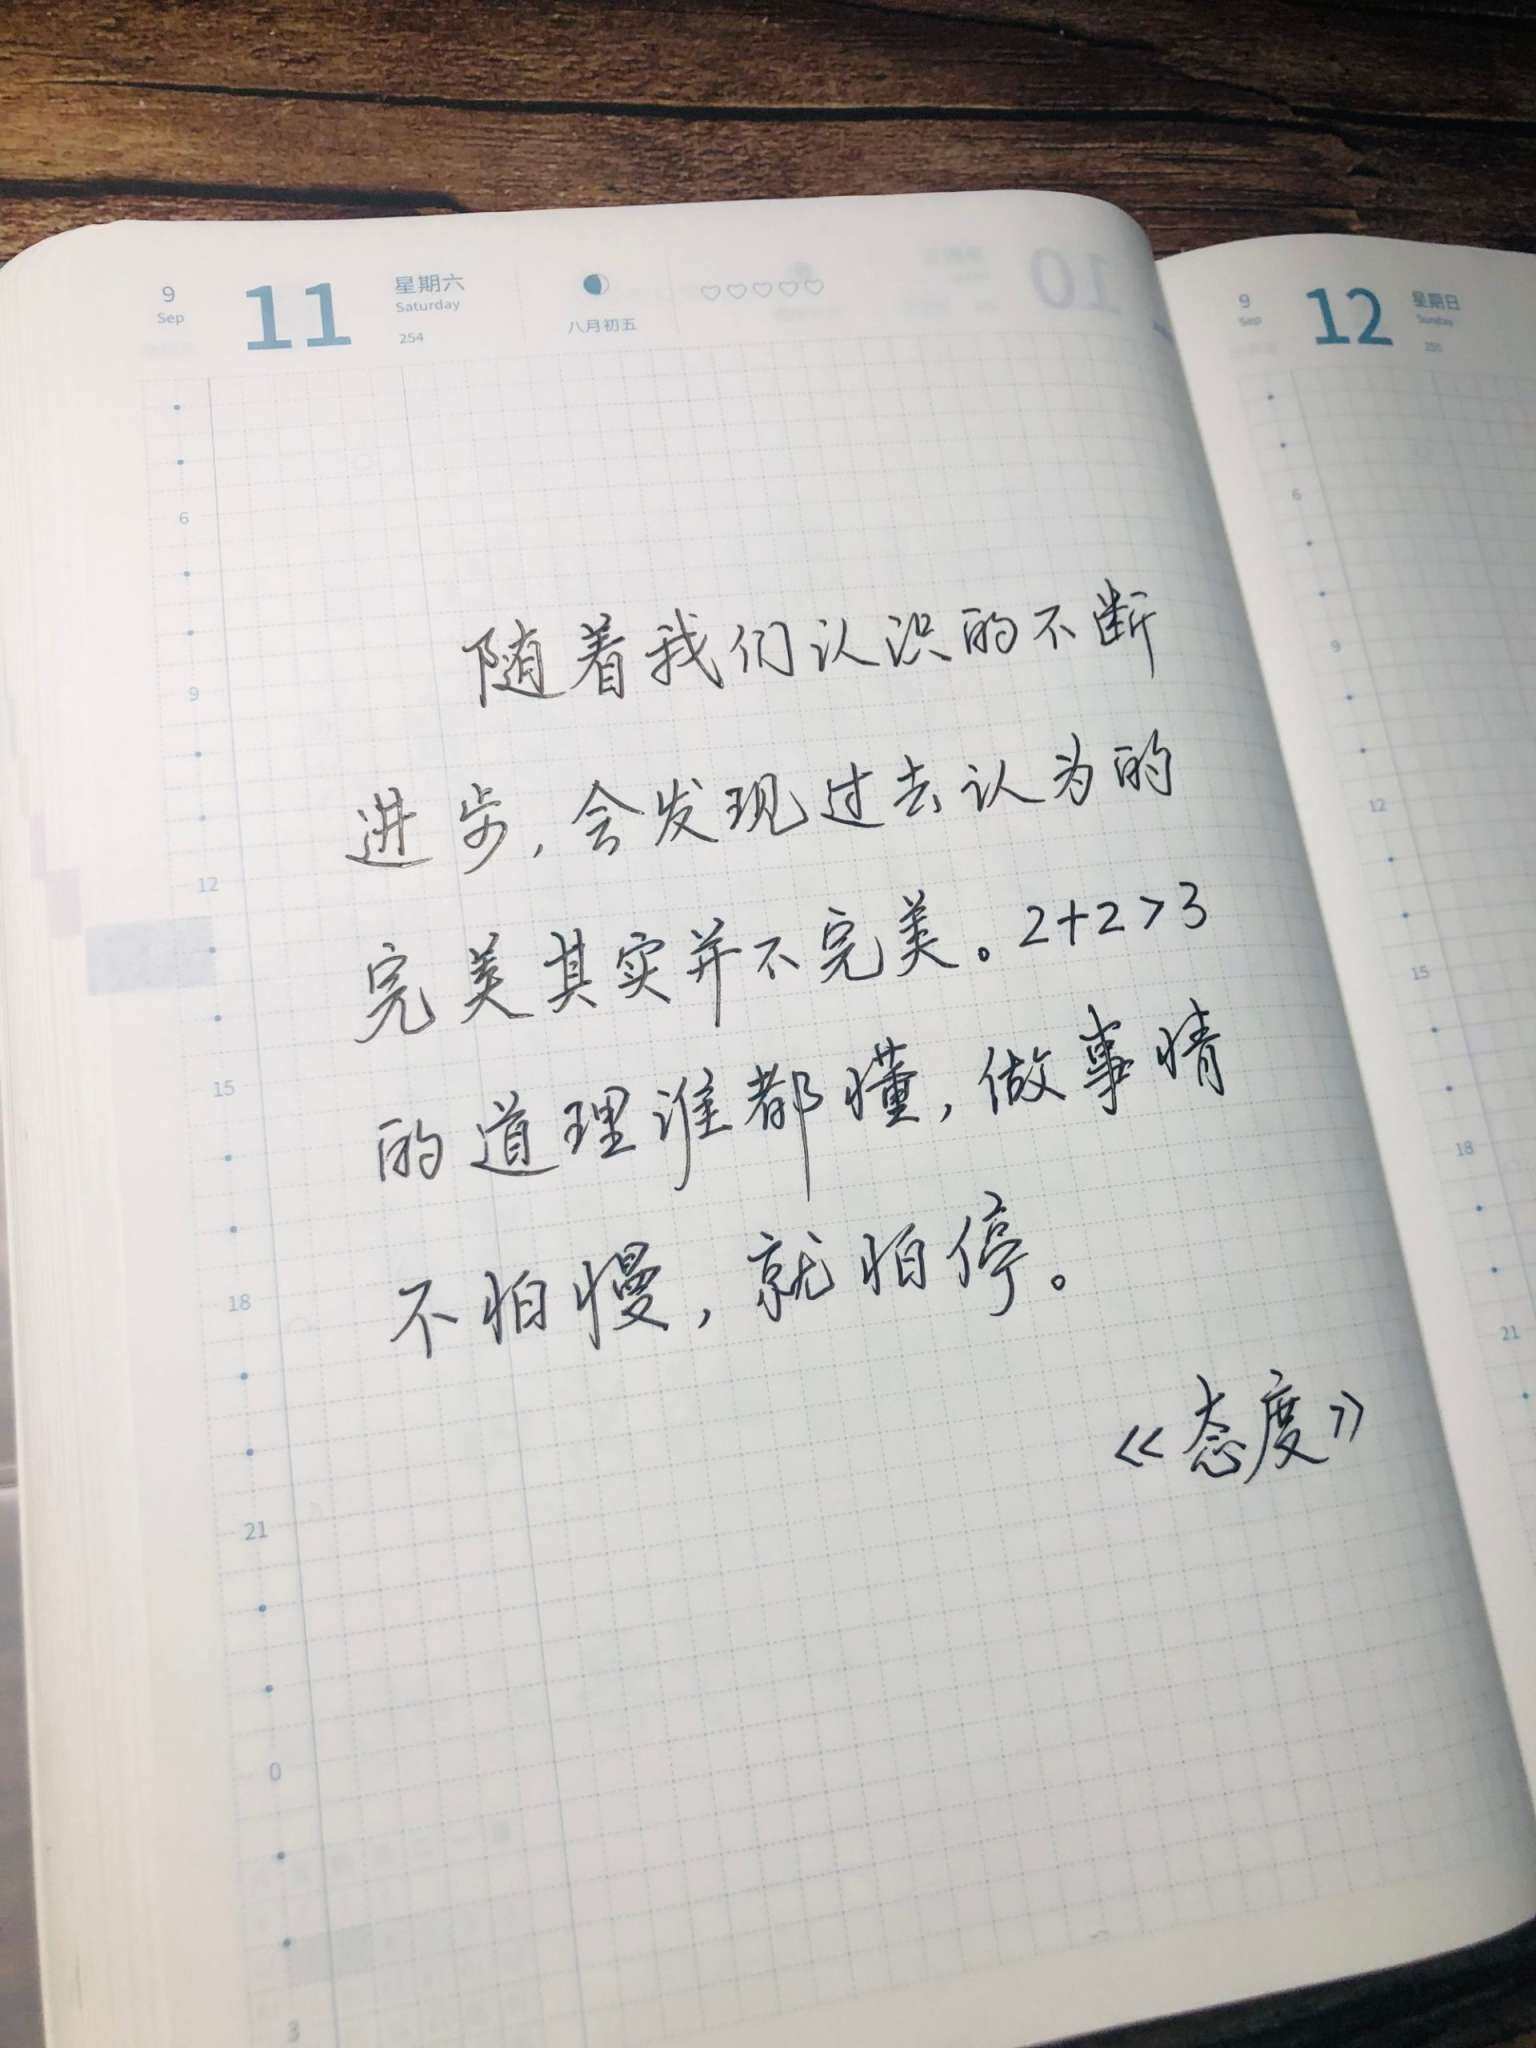 9
Sep
11
星期六
Saturday
254
八月初五
6
9
12
15
18
21
0
3
随着我们认识的不断
进步，会发现过去认为的
完美其实并不完美。2+2>3
的道理谁都懂，做事情
不怕慢，就怕停。
《态度》
9
Sep
12
星期日
Sunday
6
9
12
15
18
21